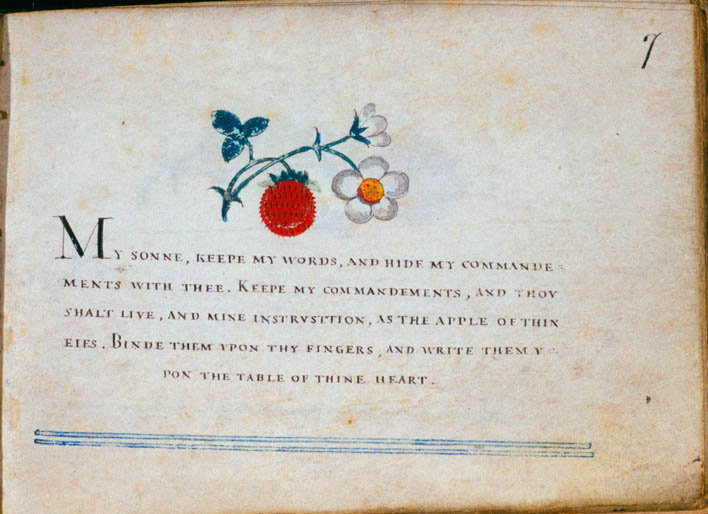 7
MY SONNE, KEEPE MY WORDS, AND HIDE MY COMMANDE=
MENTS WITH THEE. KEEPE MY COMMANDEMENTS, AND THOV
SHALT LIVE, AND MINE INSTRVSTION, AS THE APPLE OF THIN
EIES. BINDE THEM VPON THY FINGERS, AND WRITE THEM V=
PON THE TABLE OF THINE HEART.